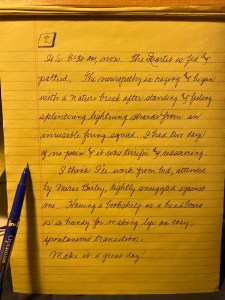 It is 8:30 AM, now. The Dexter is fed &
potted. The neuropathy is raging & began
with a nature break after standing & feeling
splintering lightning strands from an
invisible firing squad. I had two days
of no pain & it was terrific & reassuring.
I think I'll work from bed, attended
by Nurse Burley, tightly snuggled against
me. Having a bookshelf as a headboard
is so handy for making life an easy,
spontaneous transition.
Make it a great day!